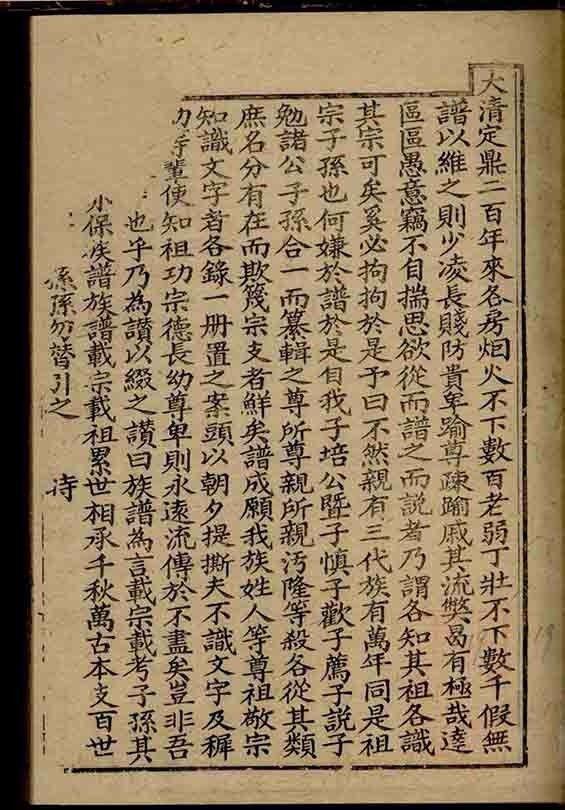 大清定鼎二百年來各房烟火不下數百老弱丁壯不下數千假無
譜以維之則少凌長賤防貴卑踰尊疎踰戚其流弊曷有極哉逵
區區愚意竊不自揣思欲從而譜之而説者乃謂各知其祖各識
其宗可矣奚必拘拘於是予曰不然親有三代族有萬年同是祖
宗子孫也何嫌於譜於是自我子培公暨子慎子歡子薦子説子
勉諸公子孫合一而纂輯之尊所尊親所親汚隆等殺各從其類
庶名分有在而欺篾宗支者鮮矣譜成願我族姓人等尊祖敬宗
知識文字者各錄一册置之案頭以朝夕提撕夫不識文字及穉
幼等輩使知祖功宗德長幼尊卑則永遠流傳於不盡矣豈非吾
也乎乃為讚以綴之讚曰族譜為言載宗載考子孫其
保族譜族譜載宗載祖累世相承千秋萬古本支百世
孫孫勿替引之